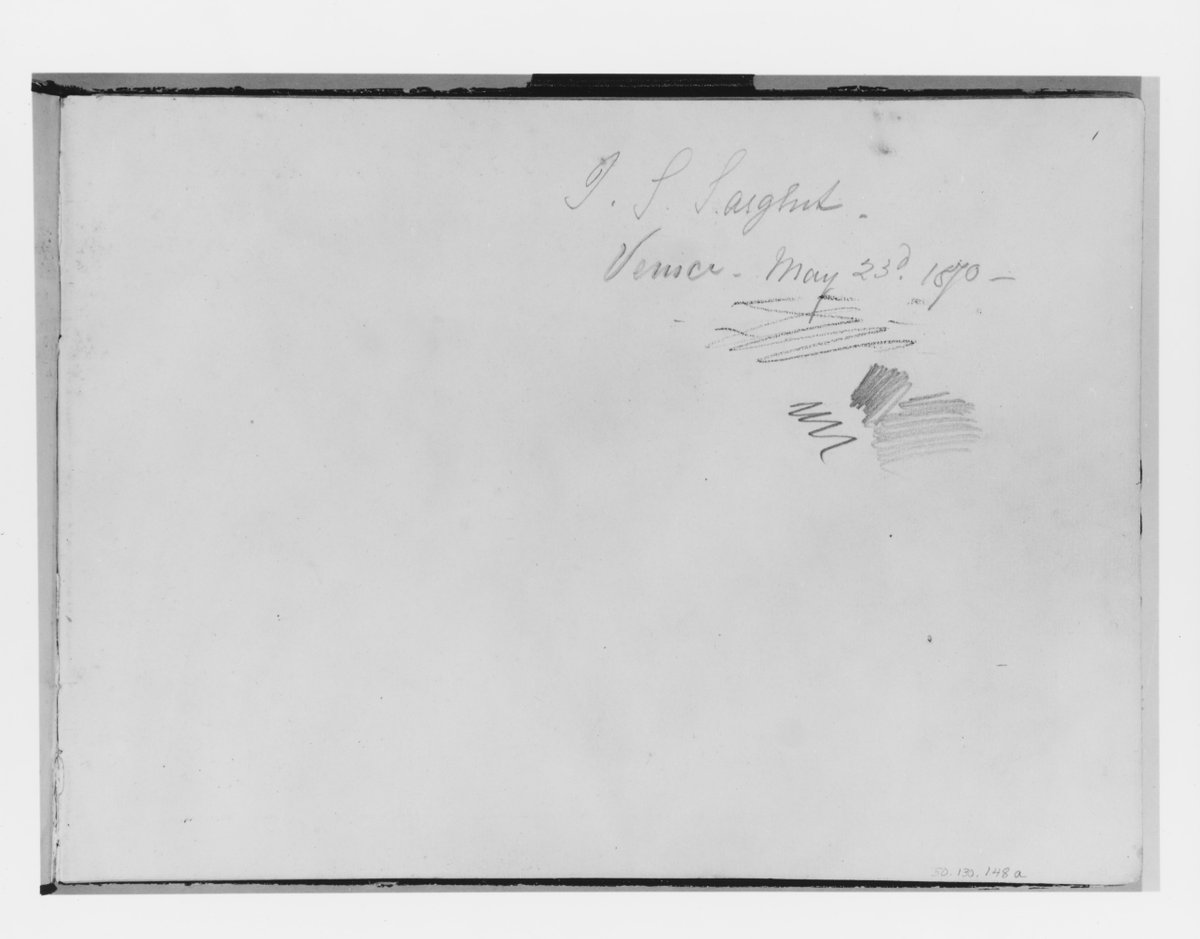 J. S. Sargent.
Venice - May 23d. 1870 -
50.130.148a